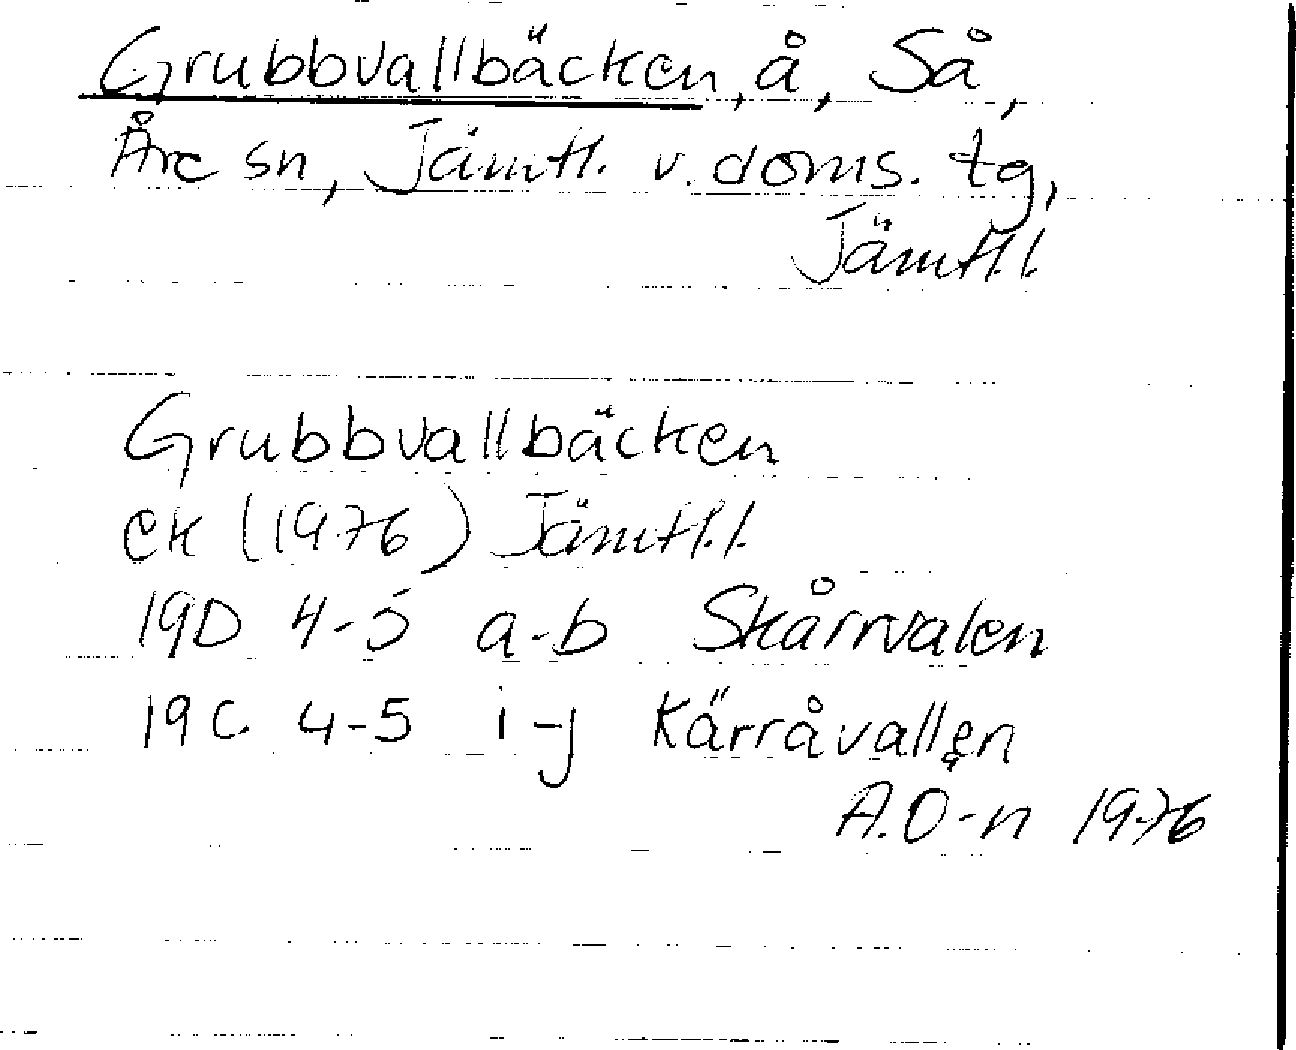 Grubbvallbäcken, å, Så,
Åre sn, Jämtl. v. doms. tg,
Jämtl.l.
Grubbvallbäcken
ek (1976) Jämtl.l.
19D 4-5 a-b Skårrvalen
19C. 4-5 i-j Kärråvallen
A.O-n 1976